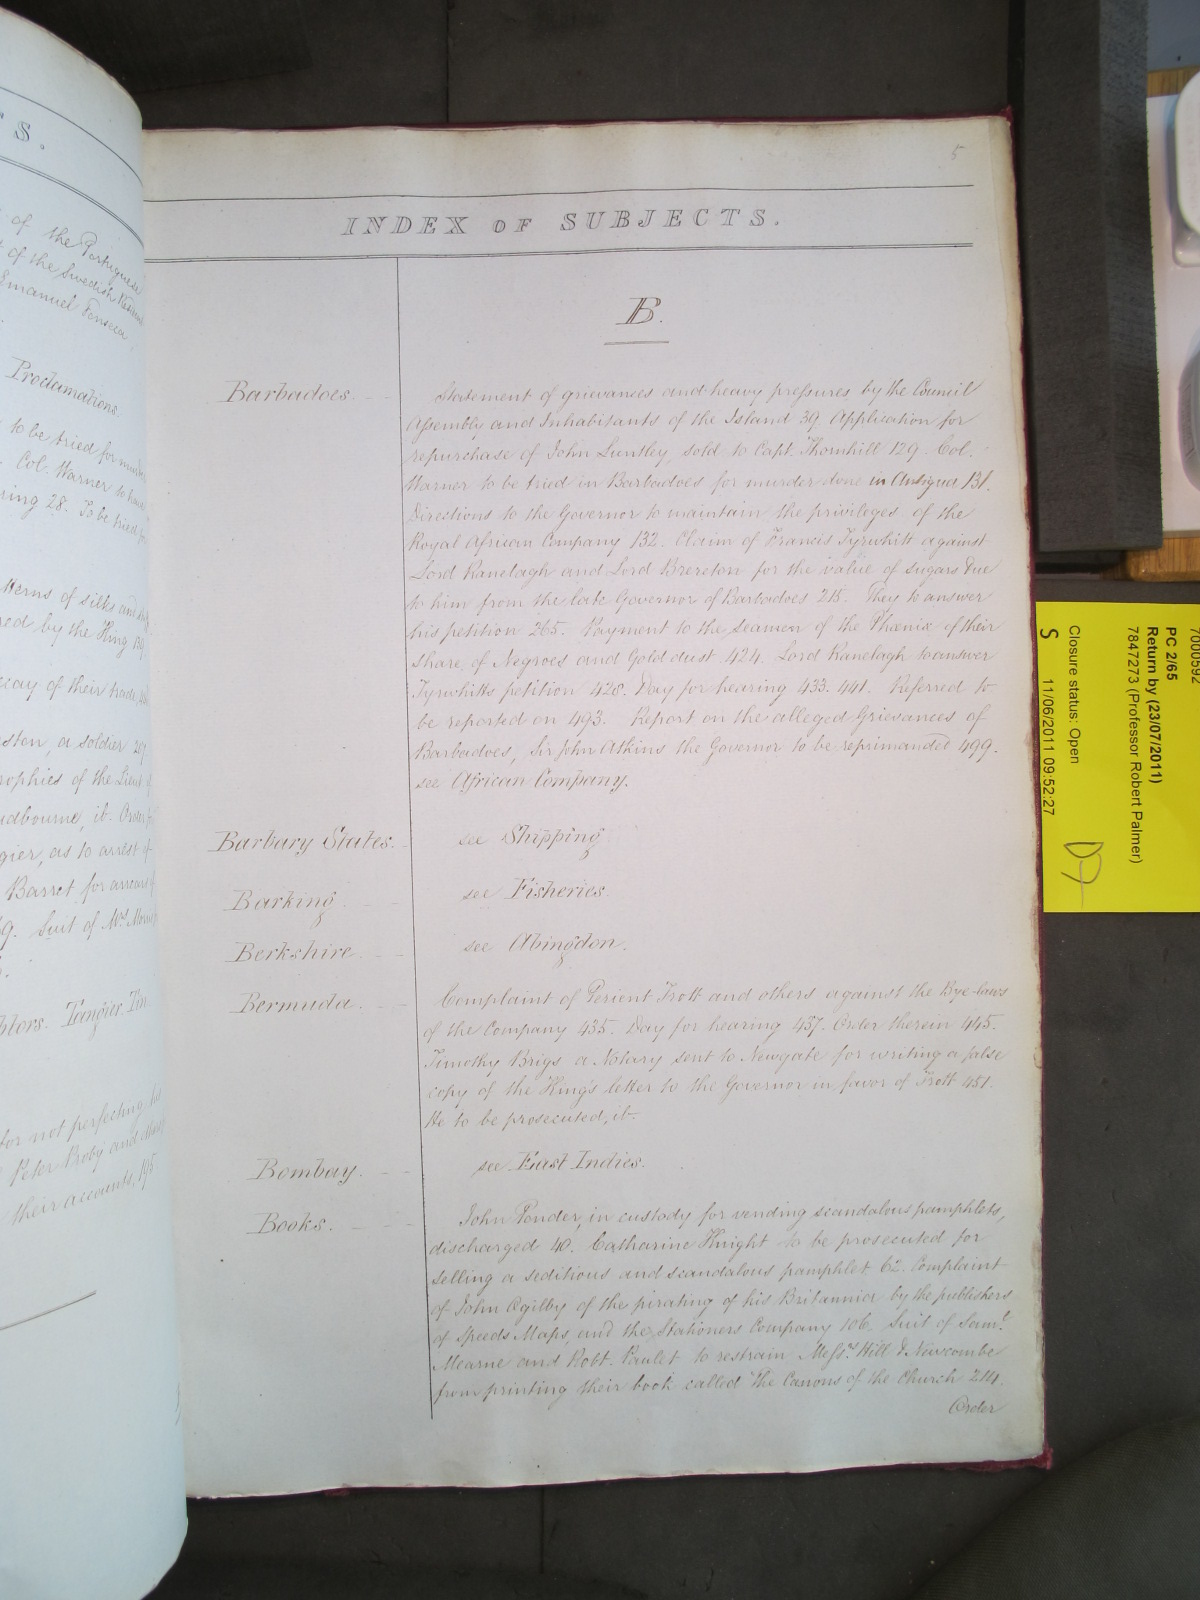 TS.
of the Portuguese
of the Swedish
Emanuel Fonseca,
Proclamations.
to be tried for
Col. Warner to have
28. To be tried
of silks and
by the King 139
of their trade,
a soldier 207
of the Lieut.
it. Order
as to arrest of
Barret for arrears
Suit of Mrs
Tangier
for not perfecting his
Peter Proby and
their accounts, 195
5
INDEX OF SUBJECTS.
B.
Barbadoes. Statement of grievances and heavy pressures by the Council
Assembly and Inhabitants of the Island 39. Application for
repurchase of John Luntley, sold to Capt. Thornhill 129. Col.
Warner to be tried in Barbadoes for murder done in Antigua 131.
Directions to the Governor to maintain the privileges of the
Royal African Company 132. Claim of Francis Tyrwhitt against
Lord Ranelagh and Lord Brereton for the value of sugars due
to him from the late Governor of Barbadoes 215. They to answer
his petition 265. Payment to the seamen of the Phœnix of their
share of Negroes and Gold dust 424. Lord Ranelagh to answer
Tyrwhitts petition 428. Day for hearing 433. 441. Referred to
be reported on 493. Report on the alleged Grievances of
Barbadoes, Sir John Atkins the Governor to be reprimanded 499.
see African Company.
Barbary States. see Shipping.
Barking. see Fisheries.
Berkshire. see Abingdon.
Bermuda. Complaint of Perient Trott and others against the Bye-laws
of the Company 435. Day for hearing 437. Order therein 445.
Timothy Brigs a Notary sent to Newgate for writing a false
copy of the King's letter to the Governor in favor of Trott 451.
He to be prosecuted, it.
Bombay. see East Indies.
Books. John Ponder, in custody for vending scandalous pamphlets,
discharged 40. Catharine Knight to be prosecuted for
selling a seditious and scandalous pamphlet 62. Complaint
of John Ogilby of the pirating of his Britannia by the publishers
of Speeds Maps, and the Stationers Company 106. Suit of Saml.
Mearne and Robt. Paulet to restrain Messrs. Hill & Newcombe
from printing their book called The Canons of the Church 214.
Order
7000592
PC 2/65
Return by (23/07/2011)
7847273 (Professor Robert Palmer)
Closure status: Open
S 11/06/2011 09:52:27